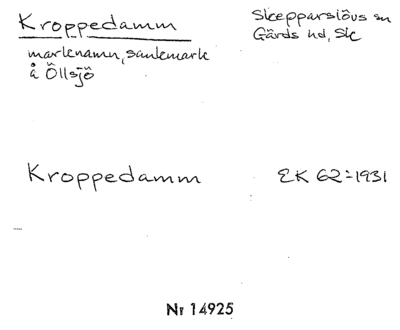 Kroppedamm
Skepparslövs sn
Gärds hd, Sk
marknamn, sankmark
å Öllsjö
Kroppedamm
EK 62:1931
Nr 14925